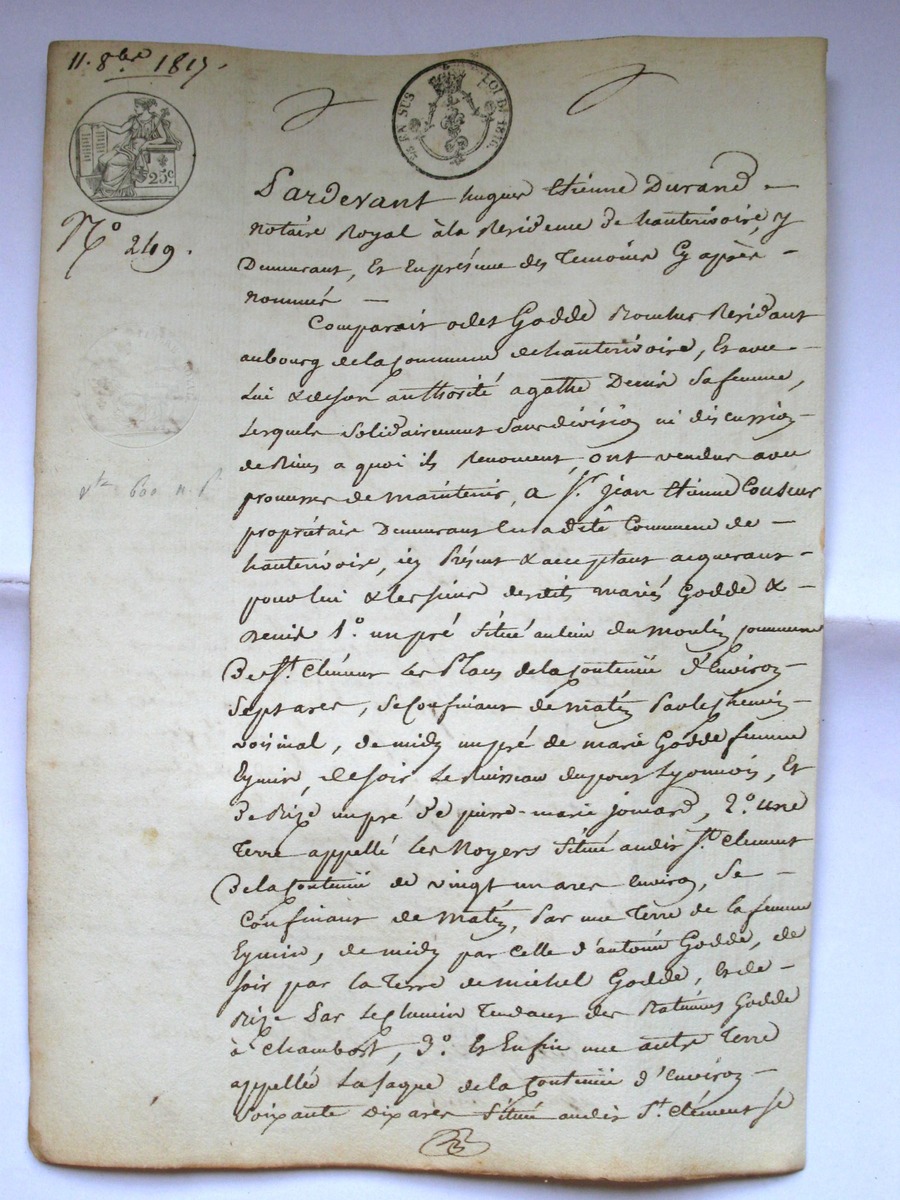 11. 8bre 1817.
EN SUS LOI DE 1816.
25.c
No 249.
Pardevant hugues Etienne Durand
notaire Royal à la Residence de hauterivoire, y
Demeurant, Et en présence des Temoins Cy après
nommés
Comparait Godde Residant
au bourg de la Commune de hauterivoire, Et avec
Lui & de son authorité agathe Denis Sa femme,
Lesquels Solidairement Sans division ni discussion
de Biens a quoi ils Renoncent ont vendus avec
promesse de maintenir, a Sr. Jean Etienne
propriétaire Demeurant En la dite Commune de
hauterivoire, icy Présent & acceptant acquerant
pour lui & les siens des dits mariés Godde &
Denis 1o. un pré Situé au lieu du moulin Commune
De St. Clément Les Places de la Contenüe d'Environ
Sept ares, Se Confinant de matin Par le chemin
voisinal, de midy un pré de marie Godde femme
Eymin, de soir Le Ruisseau du pont Lyonnois, Et
de Bize un pré de pierre-marie jomard, 2o. une
Terre appellé Les Noyers Situé audit St. Clement
De la Contenüe de vingt un ares Environ, Se
Confinant de matin, Par une Terre de la femme
Eymin, de midy par Celle d'antoine Godde, de
soir par la Terre de michel Godde, et de
Bize Par Le chemin Tendant des Godde
à Chambost, 3o. Et Enfin une autre Terre
appellée La de la Contenüe d'Environ
Soixante dix ares Situé audit St. Clément se